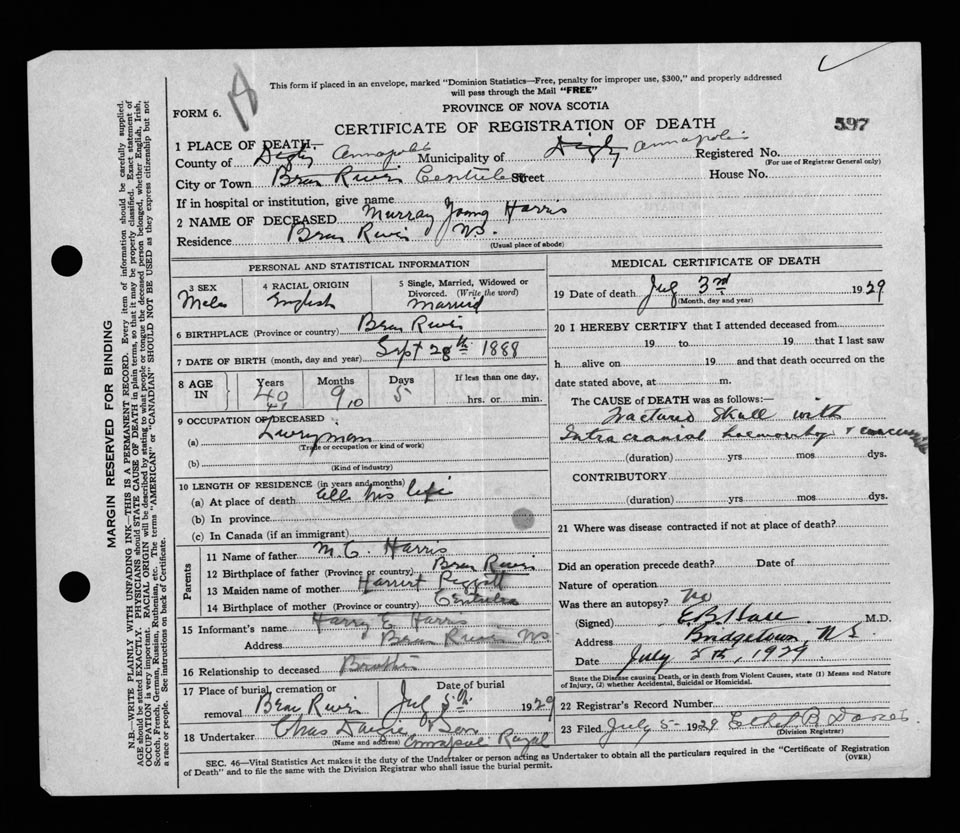 This form if placed in an envelope, marked "Dominion Statistics—Free, penalty for improper use, $300," and properly addressed
will pass through the Mail "FREE"
FORM 6.
PROVINCE OF NOVA SCOTIA
597
CERTIFICATE OF REGISTRATION OF DEATH
1 PLACE OF DEATH—
County of Digby Annapolis Municipality of Digby Annapolis Registered No.
(For use of Registrar General only)
City or Town Bear River Street House No.
If in hospital or institution, give name
2 NAME OF DECEASED Murray Young Harris
Residence Bear River NS.
(Usual place of abode)
PERSONAL AND STATISTICAL INFORMATION
3 SEX
Male
4 RACIAL ORIGIN
English
5 Single, Married, Widowed or
Divorced. (Write the word)
Married
6 BIRTHPLACE (Province or country) Bear River
7 DATE OF BIRTH (month, day and year) Sept 28th 1888
8 AGE
IN
Years
40
41
Months
9
10
Days
5
If less than one day,
hrs. or min.
9 OCCUPATION OF DECEASED
(a) Liveryman
(Trade or occupation or kind of work)
(b)
(Kind of industry)
10 LENGTH OF RESIDENCE (in years and months)
(a) At place of death All his life
(b) In province
(c) In Canada (if an immigrant)
Parents
11 Name of father M. C. Harris
12 Birthplace of father (Province or country) Bear River
13 Maiden name of mother Harriet
14 Birthplace of mother (Province or country)
15 Informant's name Harry E Harris
Address Bear River NS
16 Relationship to deceased Brother
17 Place of burial, cremation or
removal Bear River
Date of burial
July 5th 1929
18 Undertaker Chas & Son
(Name and address) Annapolis Royal
MEDICAL CERTIFICATE OF DEATH
19 Date of death July 3rd 1929
(Month, day and year)
20 I HEREBY CERTIFY that I attended deceased from
19 to 19 that I last saw
h alive on 19 and that death occurred on the
date stated above, at m.
The CAUSE of DEATH was as follows:—
Fractured Skull with
Intracranial &
(duration) yrs mos dys.
CONTRIBUTORY
(duration) yrs mos dys.
21 Where was disease contracted if not at place of death?
Did an operation precede death? Date of
Nature of operation
Was there an autopsy? No
(Signed) M.D.
Address Bridgetown, N.S.
Date July 5th, 1929
State the Disease causing Death, or in death from Violent Causes, state (1) Means and Nature
of Injury, (2) whether Accidental, Suicidal or Homicidal.
22 Registrar's Record Number
23 Filed July 5- 1929 Ethel B
(Division Registrar)
SEC. 46—Vital Statistics Act makes it the duty of the Undertaker or person acting as Undertaker to obtain all the particulars required in the "Certificate of Registration
of Death" and to file the same with the Division Registrar who shall issue the burial permit.
(OVER)
MARGIN RESERVED FOR BINDING
N.B.—WRITE PLAINLY WITH UNFADING INK—THIS IS A PERMANENT RECORD. Every item of information should be carefully supplied.
AGE should be stated EXACTLY. PHYSICIANS should STATE CAUSE OF DEATH in plain terms, so that it may be properly classified. Exact statement of
OCCUPATION is very important. RACIAL ORIGIN will be described by stating to what people or tongue the deceased person belonged, whether English, Irish,
Scotch, French, German, Russian, Ruthenian, etc. The terms "AMERICAN" or "CANADIAN" SHOULD NOT BE USED as they express citizenship but not
a race or people. See instructions on back of Certificate.